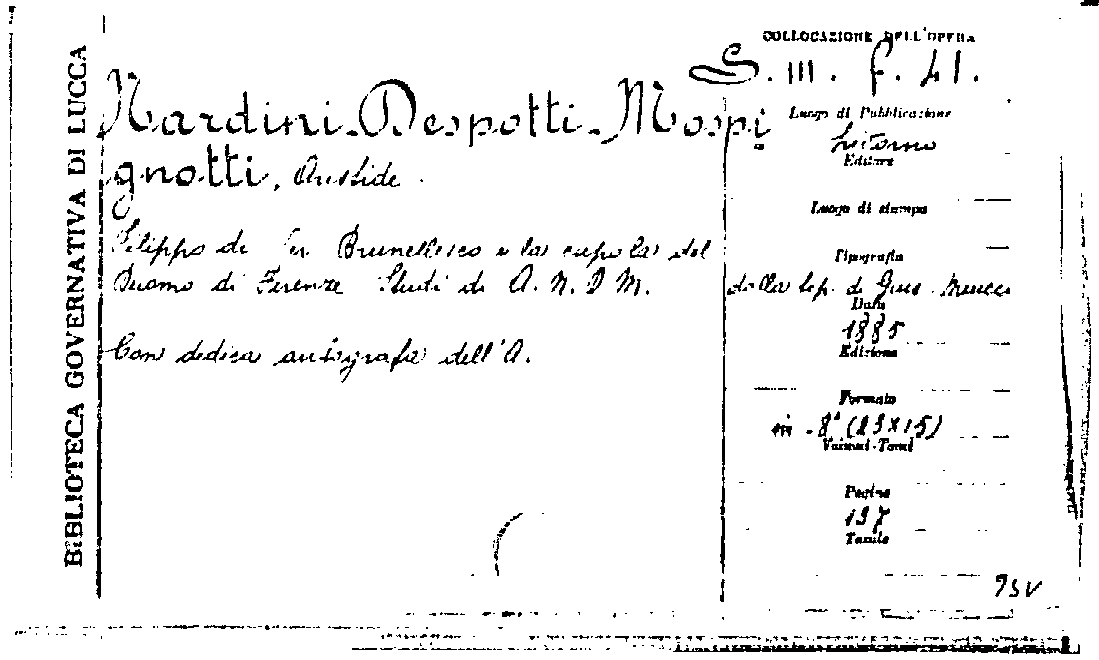 BIBLIOTECA GOVERNATIVA DI LUCCA
Nardini-Despotti-Mospi
gnotti, Aristide.
Filippo di Ser Brunellesco e la cupola del
Duomo di Firenze Studi di A. N. D M.
Con dedica autografa dell'A.
COLLOCAZIONE DELL'OPERA
S. III. f. 41.
Luogo di Pubblicazione
Livorno
Editore
Luogo di stampa
Tipografia
dalla tip. di Gius. Meucci
Data
1885
Edizione
Formato
in-8° (23×15)
Volumi-Tomi
Pagine
197
Tavole